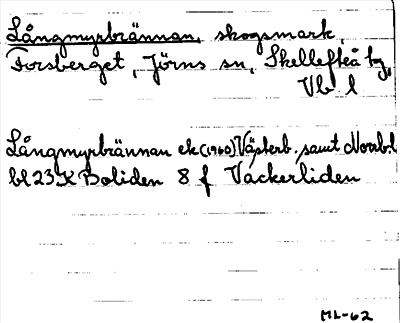 Långmyrbrännan, skogsmark,
Forsberget, Jörns sn, Skellefteå tg,
Vb l
Långmyrbrännan ek (1960) Västerb. samt Norrb. l
bl 23 K Boliden 8 f Vackerliden
ML-62